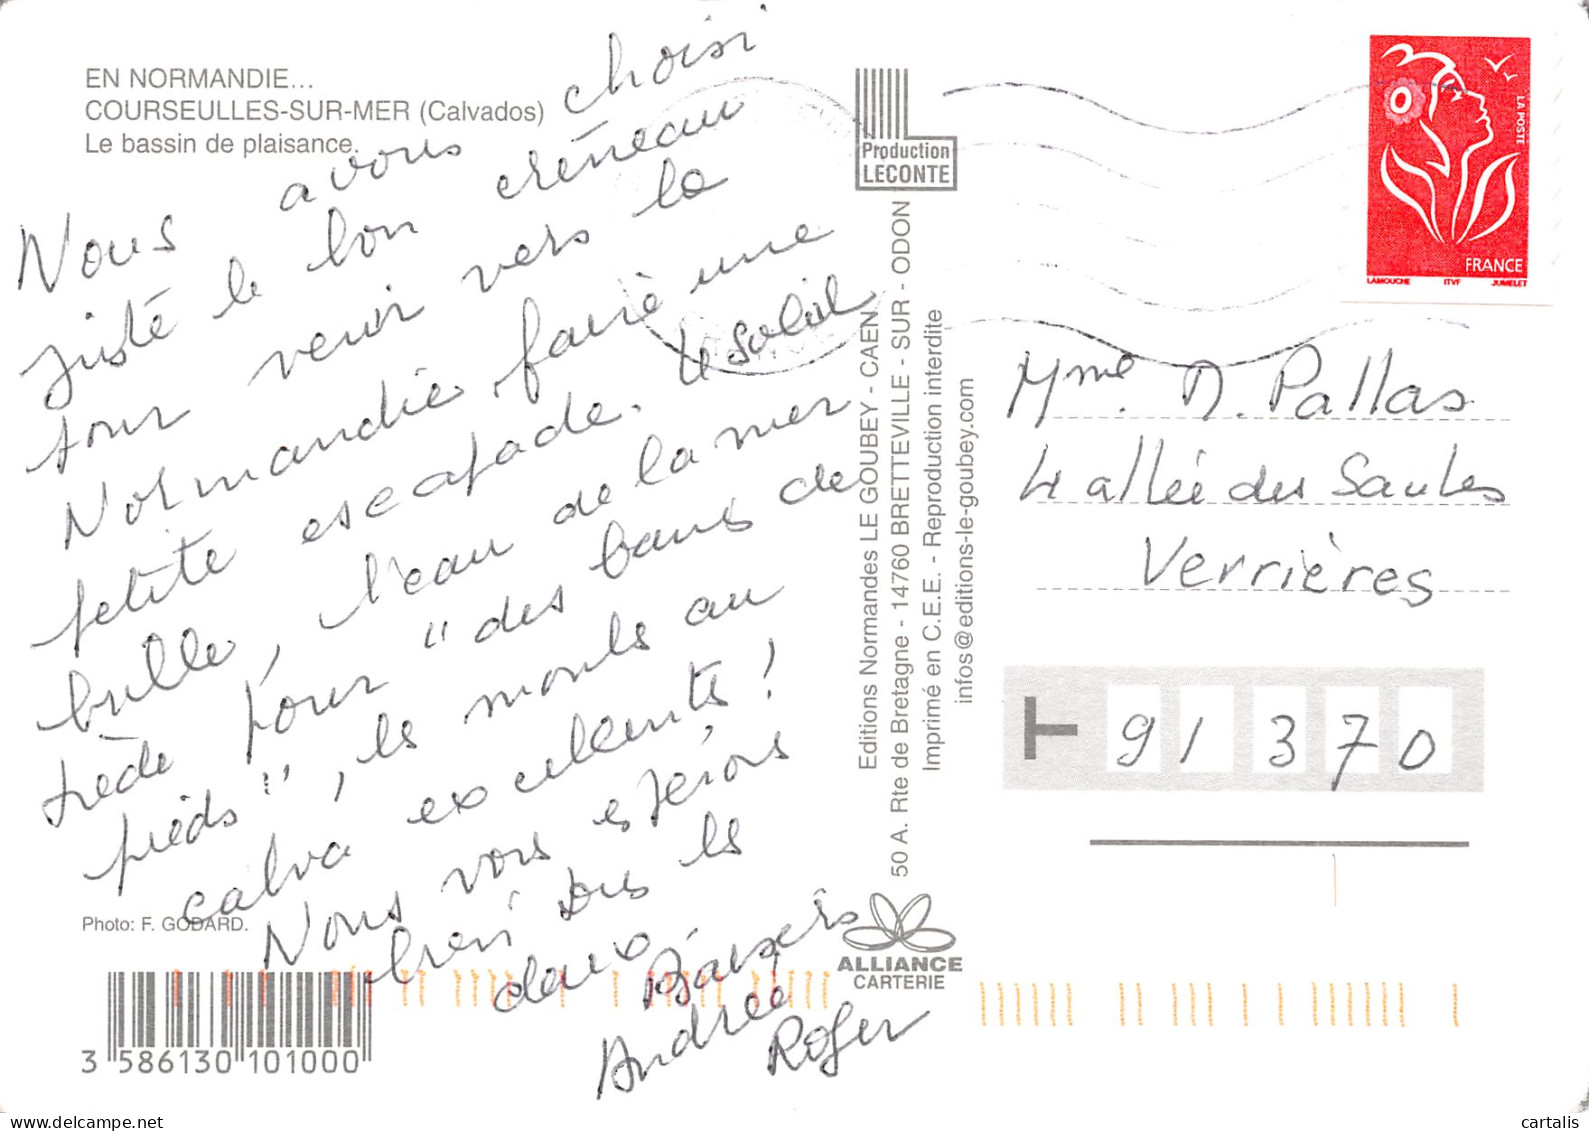 EN NORMANDIE...
COURSEULLES-SUR-MER (Calvados)
Le bassin de plaisance.
Nous avons choisi
juste le bon créneau
pour venir vers la
Normandie, faire une
petite escapade. Le soleil
brille, l'eau de la mer
tiède pour "des bains de
pieds", les moules au
calva excellentes !
Nous vous espérons
bien tous les
deux
Baisers
Andrée
Roger
Photo: F. GODARD.
3 586130 101000
Production
LECONTE
Editions Normandes LE GOUBEY - CAEN
50 A. Rte de Bretagne - 14760 BRETTEVILLE - SUR - ODON
Imprimé en C.E.E. - Reproduction interdite
infos@editions-le-goubey.com
ALLIANCE
CARTERIE
LA POSTE
FRANCE
LAMOUCHE ITVF JUMELET
Mme. D. Pallas
4 allée des Saules
Verrières
91370
www.delcampe.net
cartalis